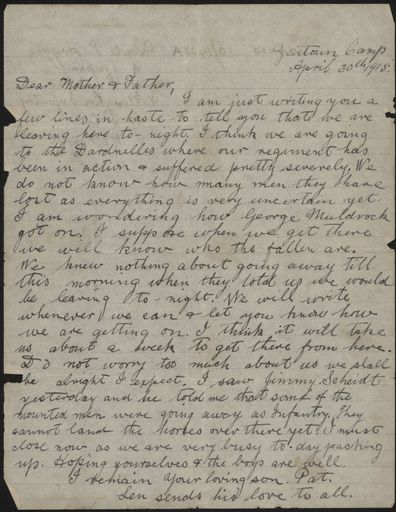 Zitoun Camp
April 30th 1915.
Dear Mother & Father,
I am just writing you a
few lines in haste to tell you that we are
leaving here to-night. I think we are going
to the Dardnelles where our regiment has
been in action & suffered pretty severely. We
do not know how many men they have
lost as everything is very uncertain yet.
I am wondering how George Muldrock
got on. I suppose when we get there
we will know who the fallen are.
We knew nothing about going away till
this morning when they told us we would
be leaving to-night. We will write
whenever we can & let you know how
we are getting on. I think it will take
us about a week to get there from here.
Do not worry too much about us we shall
be alright I expect. I saw Jimmy Scheidt
yesterday and he told me that some of the
mounted men were going away as Infantry. They
cannot land the horses over there yet. I must
close now as we are very busy to-day packing
up. Hoping yourselves & the boys are well.
I remain Your loving son. Pat.
Len sends his love to all.